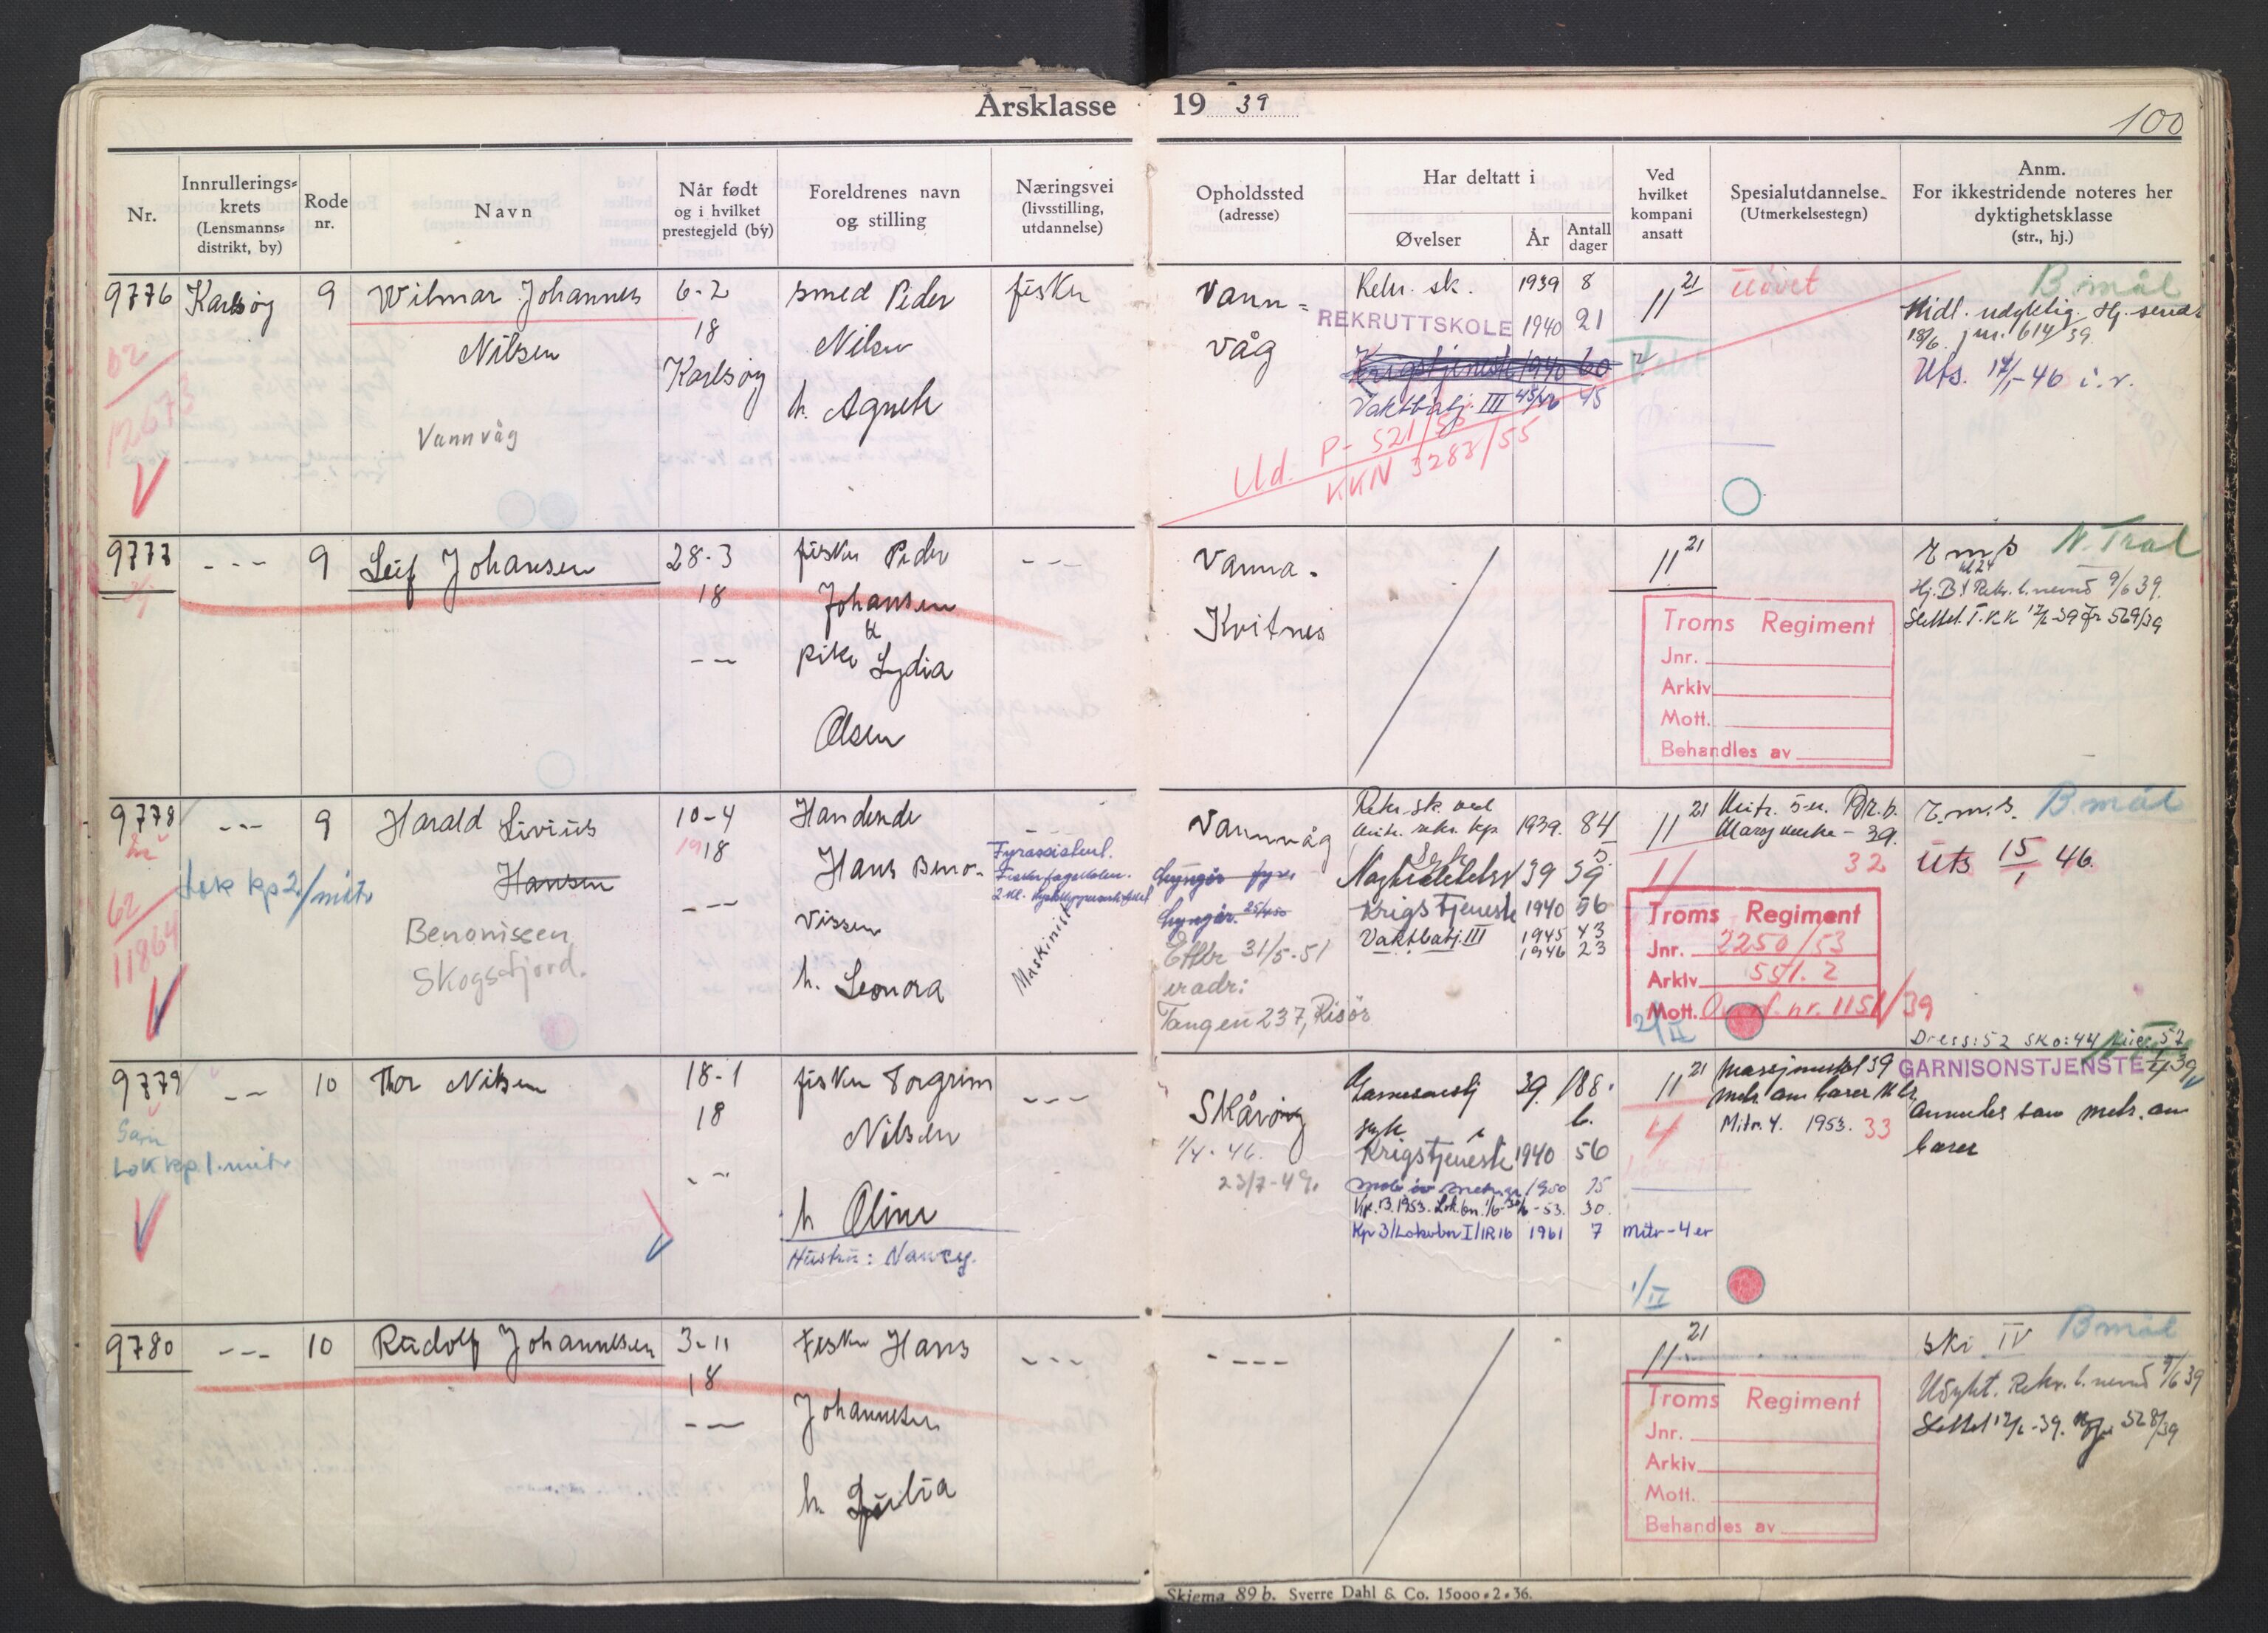 Årsklasse 1939
100
Nr.
Innrullerings-
krets
(Lensmanns-
distrikt, by)
Rode
nr.
Navn
Når født
og i hvilket
prestegjeld (by)
Foreldrenes navn
og stilling
Næringsvei
(livsstilling,
utdannelse)
Opholdssted
(adresse)
Har deltatt i
Øvelser
År
Antall
dager
Ved
hvilket
kompani
ansatt
Spesialutdannelse
(Utmerkelsestegn)
Anm.
For ikkestridende noteres her
dyktighetsklasse
(str., hj.)
9776
62
12673
Karlsøy
9
Wilmar Johannes
Nilsen
Vannvåg
6-2
18
Karlsøy
smed Peder
Nilsen
h. Agneth
fisker
Vann=
våg
Rekr. sk. 1939 8
REKRUTTSKOLE 1940 21
Krigstjeneste 1940 60
Vaktbatj. III 45/46 45
Ud. P- 521/55
KKN 3283/55
11 21
Uövet
B. mål
Midl. udyktig. Hj.
18/6. jnr. 614/39.
Uts. 17/1-46 i. r.
9777
---
9
Leif Johansen
28-3
18
---
fisker Peder
Johansen
pike Lydia
Olsen
---
Vanna.
Kvitnes
11 21
Troms Regiment
Jnr.
Arkiv
Mott.
Behandles av
N. Trål
Hj. B. Rekr. l. nevnd 9/6 39.
Slettet T.K.K 12/6-39 Jr 529/39
9778
62
11864
---
Lok kp 2/mitr
9
Harald Livius
Hansen
Benonissen
Skogsfjord.
10-4
1918
---
Handende
Hans Beno-
vissen
h. Leonora
---
Fyrassistent.
Fiskerfagskolen.
Maskinist
Vannvåg
Lyngør fyr
Lyngør. 25/4 50
Efter 31/5-51
er adr:
Tangen 237, Risör
Rekr. sk. ved
mitr. rekr. kp 1939. 84
Nøytralitetsv 39 59
Krigstjeneste 1940 56
Vaktbatj. III 1945 43
1946 23
11 21
32
Troms Regiment
Jnr. 2250/53
Arkiv 551. 2
Mott. Overf. nr. 1151/39
2/II
B. mål
Uts 15/1 46.
Dress: 52 Sko: 44 52
9779
Lok kp 1. mitr
---
10
Thor Nilsen
18-1
18
---
fisker Torgrim
Nilsen
h Oline
Hustru: Nancy.
---
Skårøy
1/4-46.
23/7-49.
Garnisonstj 39. 188.
syk 6.
Krigstjeneste 1940 56
1950 15
Kp. B. 1953. Lok.bn. 1/6-30/6-53. 30.
Kp 3/Lokvbn I/IR16 1961 7 Mitr-4er
11 21
4
1/II
39
Mitr. 4. 1953. 33
GARNISONSTJENSTE 39
Anmeldes som mitr. am
barer
9780
---
10
Rudolf Johannesen
3-11
18
---
Fisker Hans
Johannesen
h. Julia
---
----
11 21
Troms Regiment
Jnr.
Arkiv
Mott.
Behandles av
Ski IV B mål
Udykt. Rekr. l. nevnd 9/6 39
Slettet 12/6-39. 528/39
Skjema 89 b. Sverre Dahl & Co. 15000-2-36.